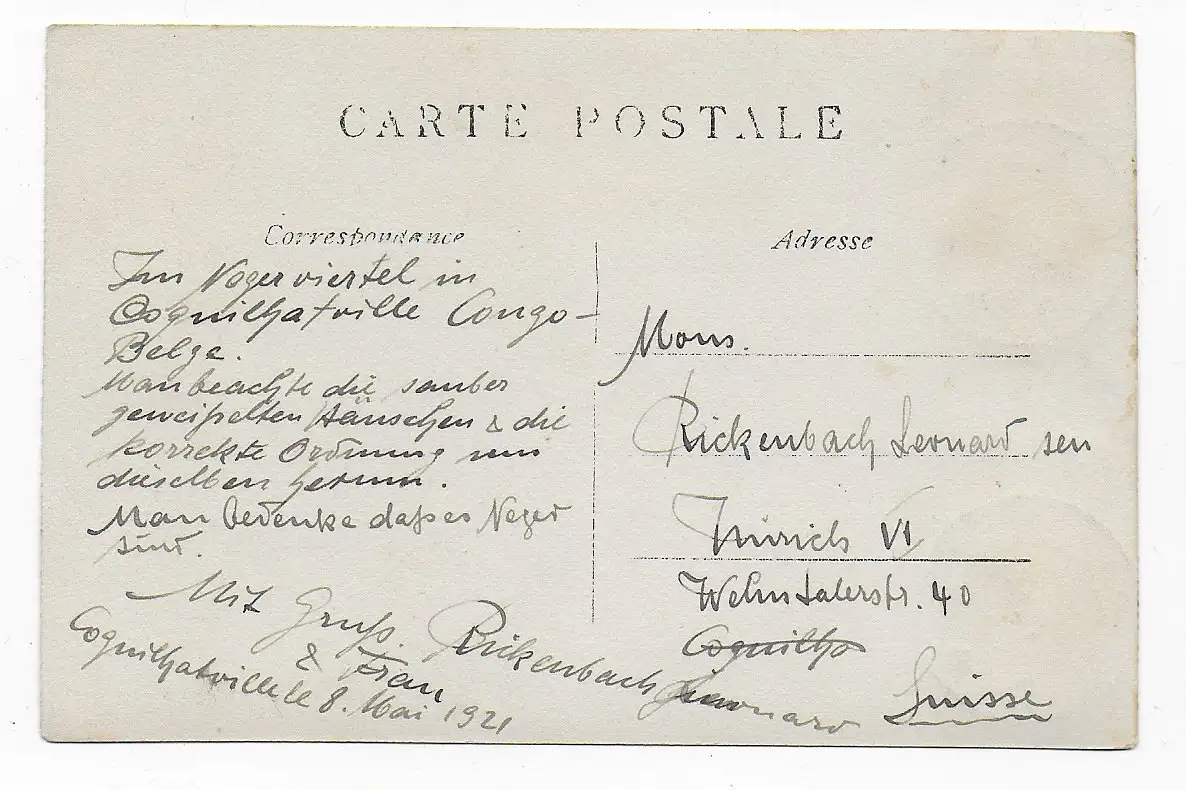 CARTE POSTALE
Correspondance
Im Negerviertel in
Coquilhatville Congo-
Belge.
Man beachte die sauber
geweißelten Häuschen & die
korrekte Ordnung um
dieselben herum.
Man bedenke daß es Neger
sind.
Mit Gruß. Rickenbach Leonard
& Frau
Coquilhatville le 8. Mai 1921
Adresse
Mons.
Rickenbach Leonard sen
Zürich VI
Wehntalerstr. 40
Coquilha
Suisse